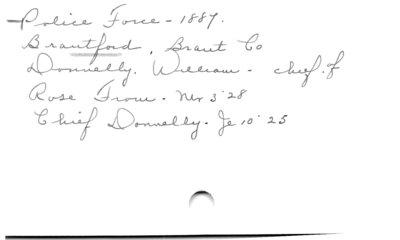 Police Force - 1887.
Brantford, Brant Co
Donnelly, William - chief of
Rose From - Mr 3 '28
Chief Donnelly - Je 10 '25